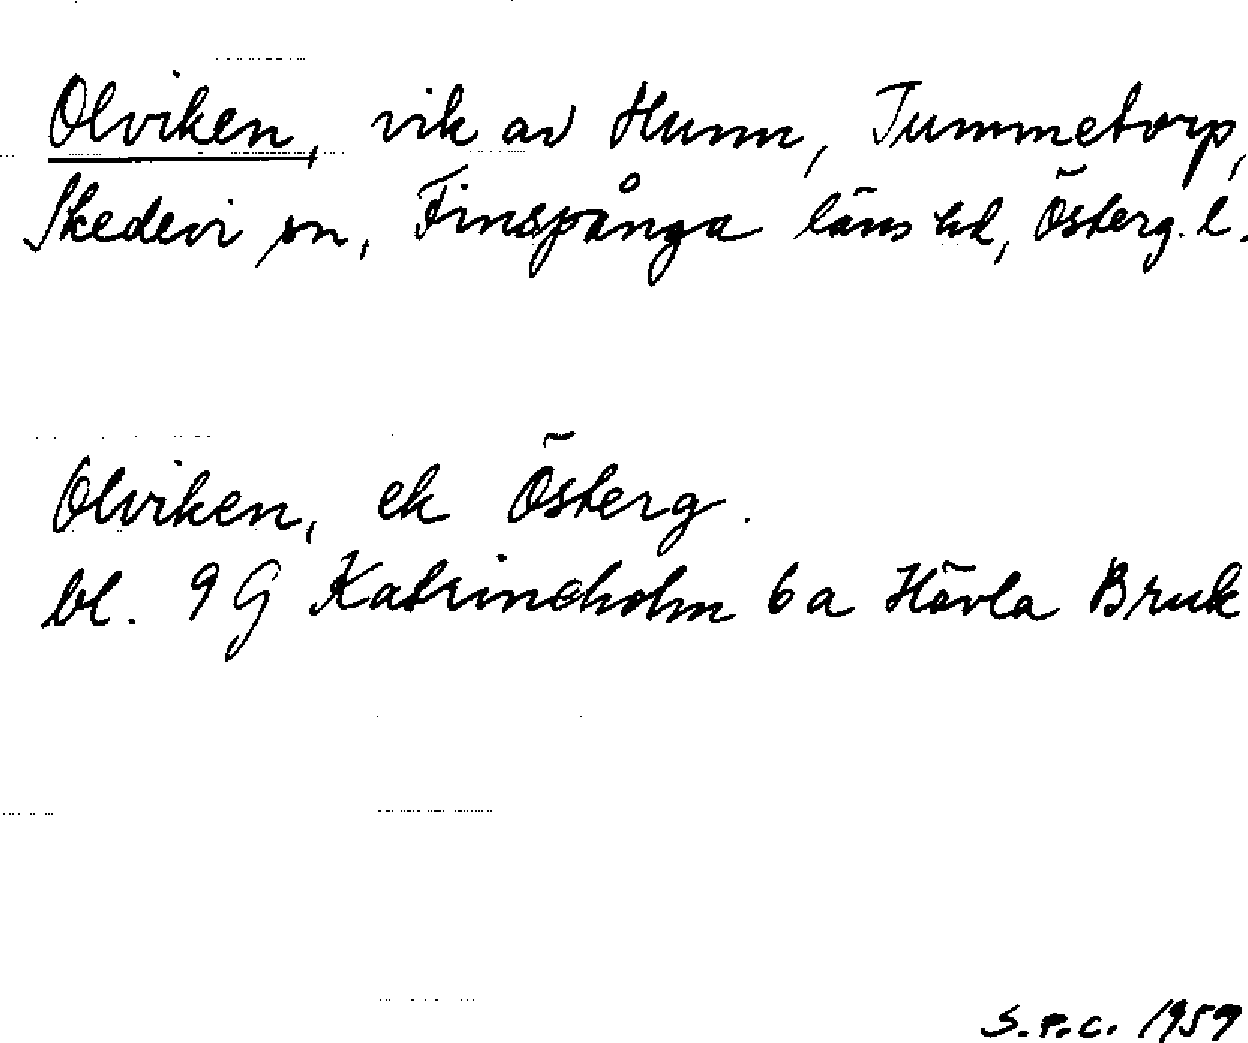 Olviken, vik av Hunn, Tummetorp,
Skedevi sn, Finspånga läns hd, Österg. l.
Olviken, ek Österg.
bl. 9G Katrineholm 6a Hävla Bruk
S.P.C. 1959